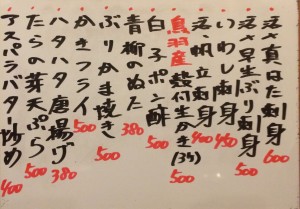 活〆真はた刺身 600
活〆早生ぶり刺身 500
いわし刺身 450
活〆帆立刺身 400
鳥羽産 殻付生かき(3ケ) 500
白子ポン酢 500
青柳のぬた 380
ぶりかま焼き 500
かきフライ 500
ハタハタ唐揚げ 380
たらの芽天ぷら 500
アスパラバター炒め 400